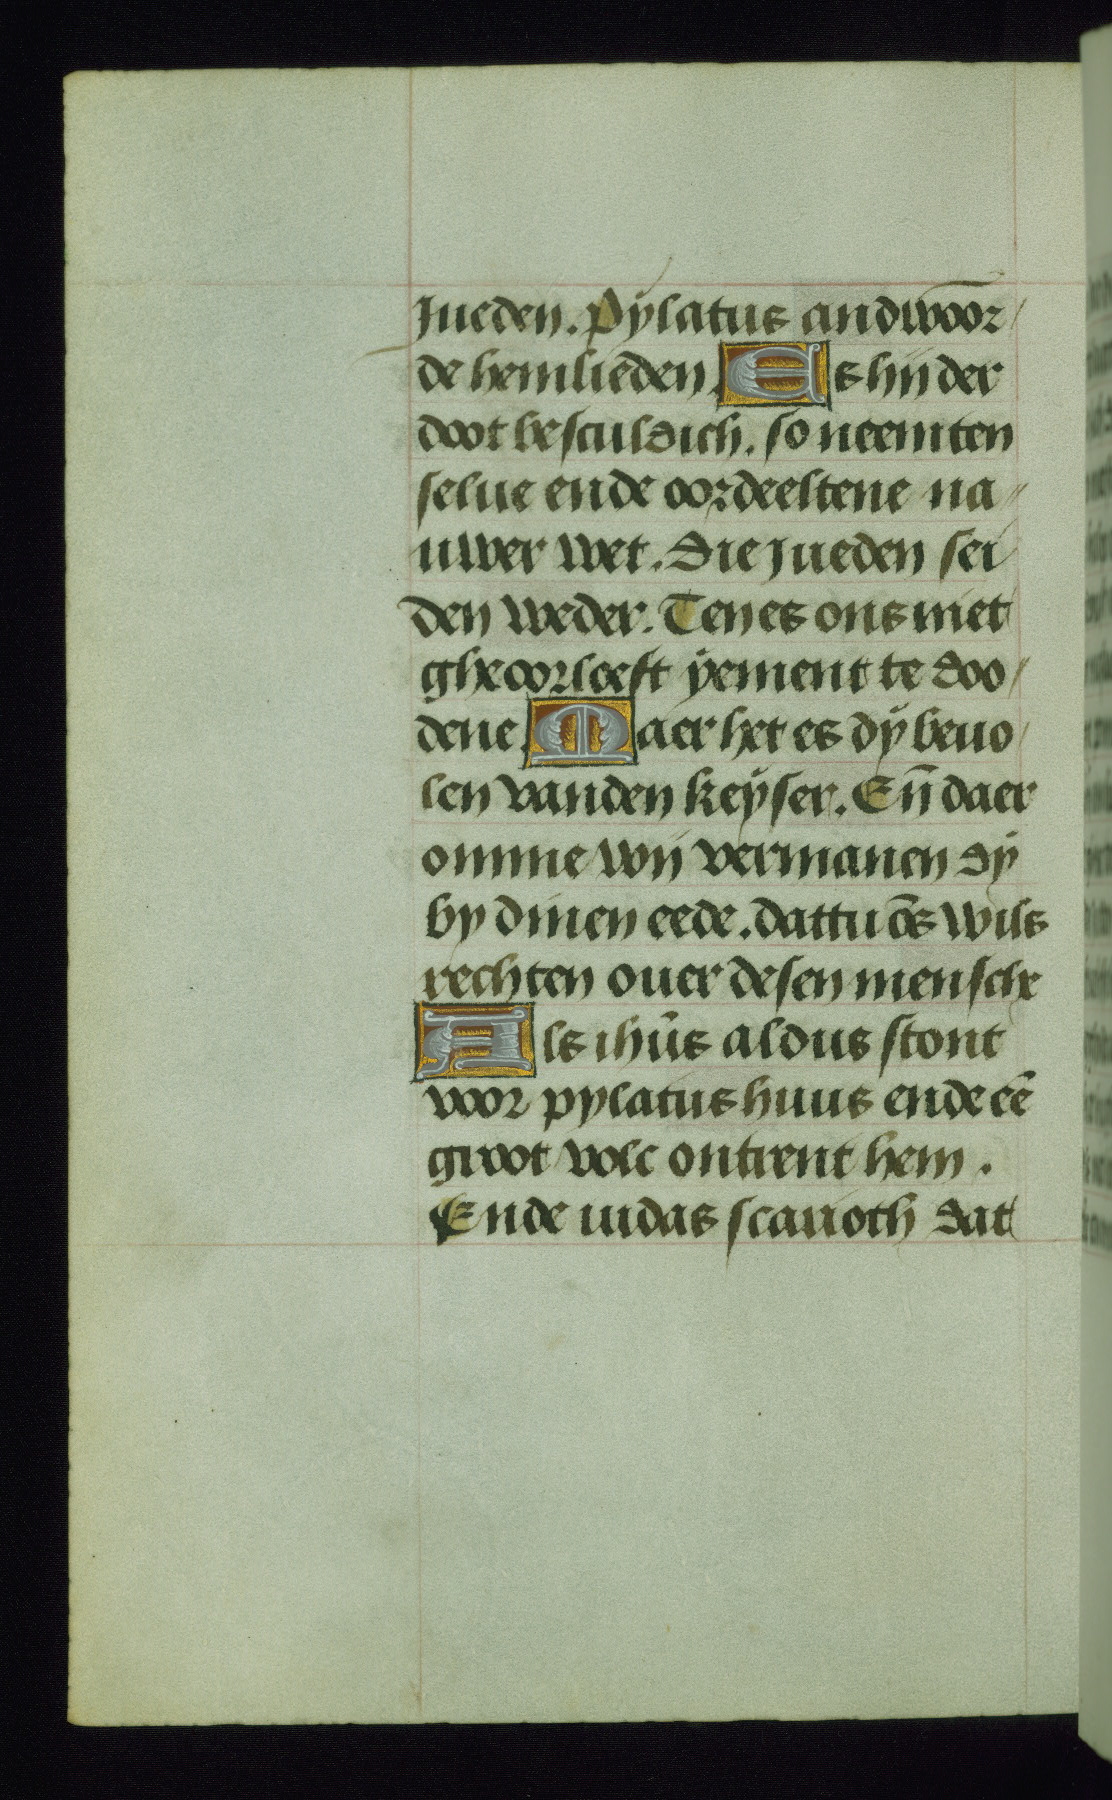 Jueden. Pÿlatus andwoor/
de hemlieden. Es hy der
doot besculdich. so neemten
selue ende oordeeltene na//
uwer wet. Die Jueden sei/
den weder. Ten es ons niet
gheoorloeft ÿement te doo/
dene Maer het es dÿ beuo/
len vanden keÿser. En̄ daer
omme wij vermanen dÿ
by dinen eede. dattu ōs wils
rechten ouer desen mensche
Als ihūs aldus stont
voor pylatus huus ende eē
groot volc ontrent hem.
Ende iudas scarioth dat